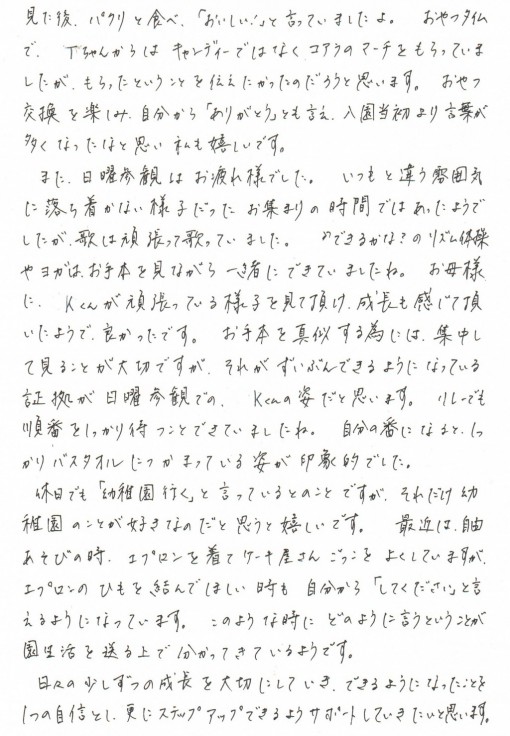 見た後、パクリと食べ、「おいしい!」と言っていましたよ。 おやつタイム
で、Tちゃんからは キャンディーではなく コアラのマーチをもらっていま
したが、もらったということを伝えたかったのだろうと思います。 おやつ
交換を楽しみ、自分から「ありがとう」とも言え、入園当初より言葉が
多くなったなと思い 私も嬉しいです。
また、日曜参観はお疲れ様でした。 いつもと違う雰囲気
に落ち着かない様子だった お集まりの時間ではあったようで
したが、歌は頑張って歌っていました。 できるかな?のリズム体操
やヨガは、お手本を見ながら 一緒にできていましたね。 お母様
に、Kくんが頑張っている様子を見て頂け、成長も感じて頂
いたようで、良かったです。 お手本を真似する為には、集中し
て見ることが大切ですが、それがずいぶんできるようになっている
証拠が日曜参観での、Kくんの姿だと思います。 リレーでも
順番をしっかり待つことできていましたね。 自分の番になると、しっ
かりバスタオルにつかまっている姿が印象的でした。
休日でも「幼稚園行く」と言っているとのことですが、それだけ幼
稚園のことが好きなのだと思うと嬉しいです。 最近は、自由
あそびの時、エプロンを着てケーキ屋さんごっこをよくしていますが、
エプロンのひもを結んでほしい時も 自分から「してください」と言
えるようになっています。 このような時に どのように言うということが
園生活を送る上で分かってきているようです。
日々の少しずつの成長を大切にしていき、できるようになったことを
1つの自信とし、更にステップアップできるようサポートしていきたいと思います。